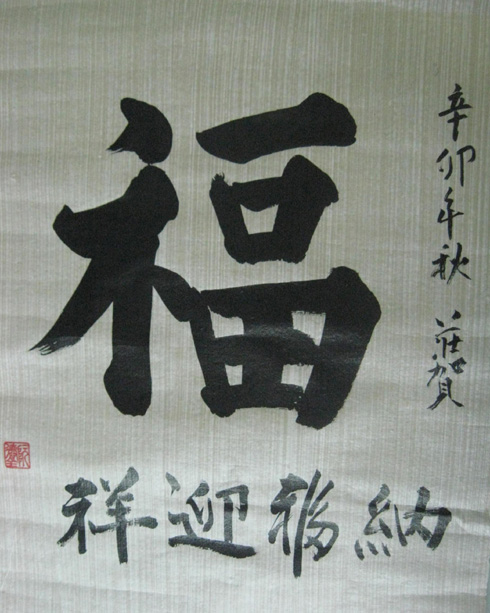 辛卯年秋 莊賀
福
納福迎祥